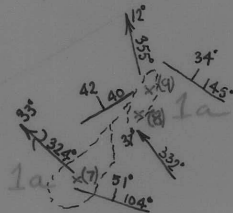 12°
355°
34°
145°
42
40
(9)
1a
(8)
33°
324°
31
332°
1a
(7)
51°
104°